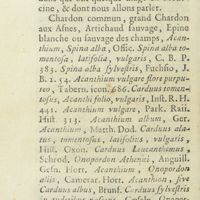 cine, & dont nous allons parler.
Chardon commun, grand Chardon
aux Asnes, Artichaud sauvage, Epine
blanche ou sauvage des champs, Acan-
thium, Spina alba, Offic. Spina alba to-
mentosa, latifolia, vulgaris, C. B. P.
383. Spina alba sylvestris, Fuchsio, J.
B. 1. 54. Acanthium vulgare flore purpu-
reo, Tabern. icon. 686. Carduus tomen-
tosus, Acanthi folio, vulgaris, Inst. R. H.
441. Acanthium vulgare, Park. Raii.
Hist. 313. Acanthium album, Ger.
Acanthium, Matth. Dod. Carduus ala-
tus, tomentosus, latifolius, vulgaris,
Hist. Oxon. Carduus Leucanthemus,
Schrod. Onopordon Athenei, Anguill.
Gesn. Hort. Acanthium, Onopordon
aliis, Camerar. Hort. Acanthion, sive
Carduus albus, Brunf. Carduus sylvestris